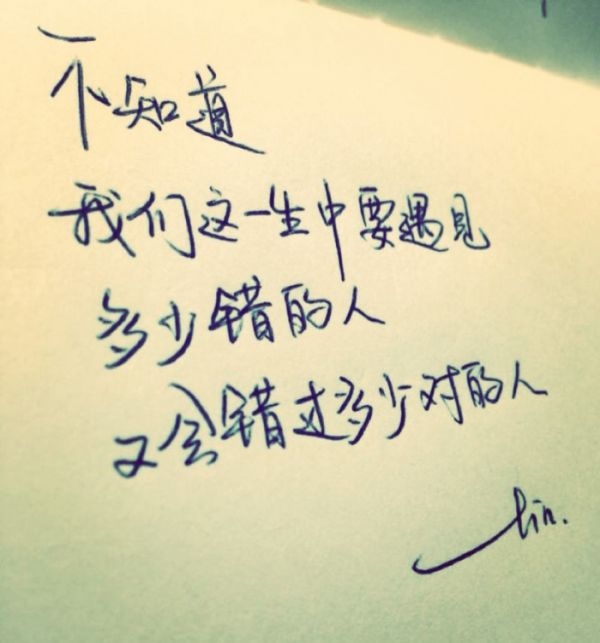 不知道
我们这一生中要遇见
多少错的人
又会错过多少对的人
lin.